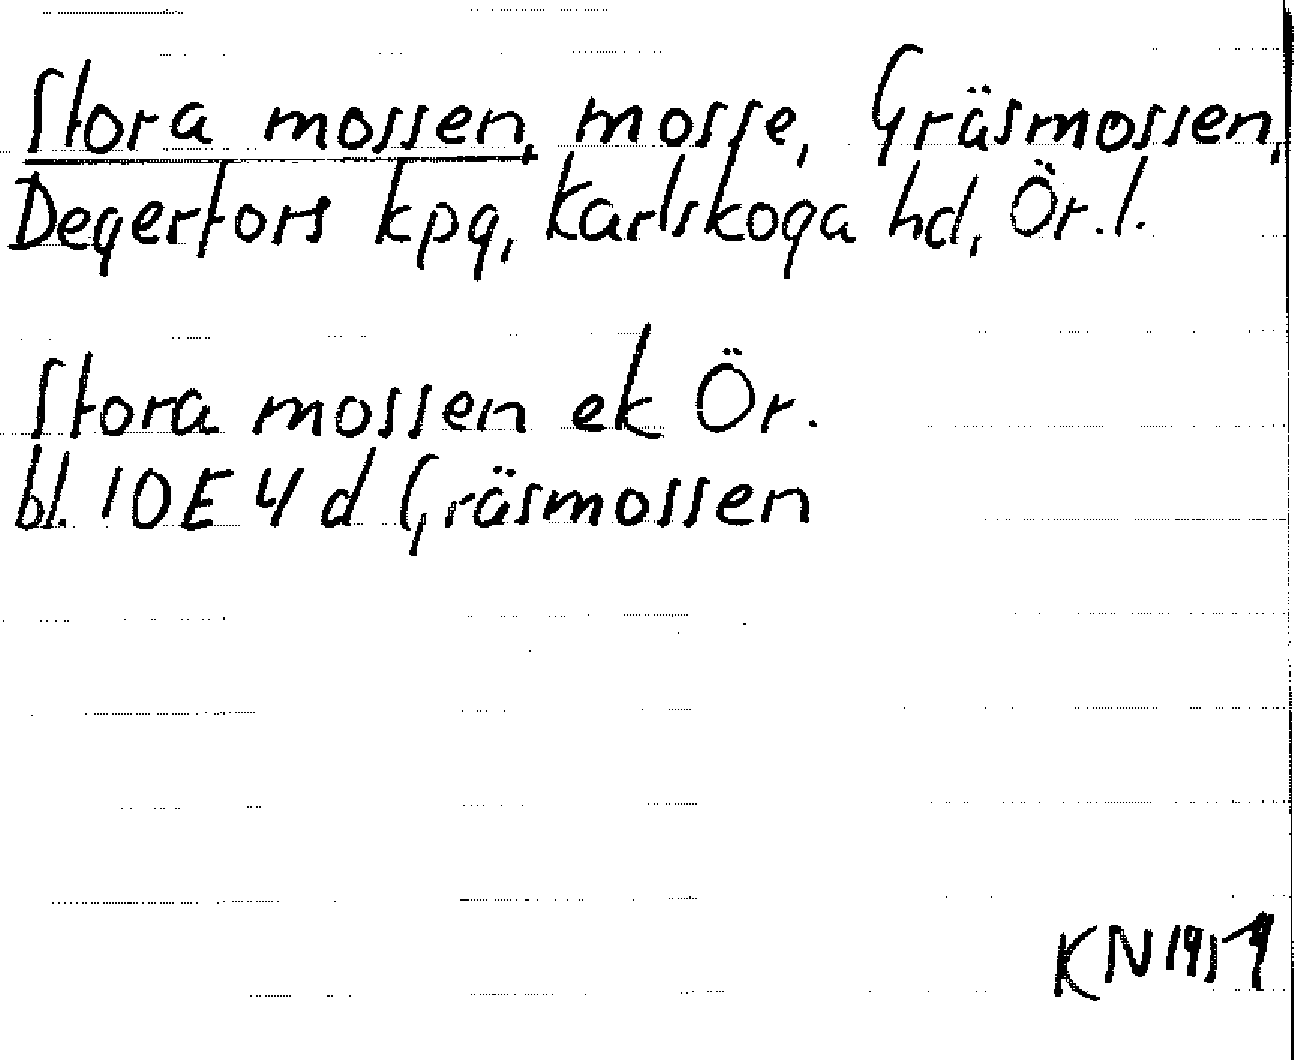 Stora mossen, mosse, Gräsmossen,
Degerfors kpg, Karlskoga hd, Ör. l.
Stora mossen ek Ör.
bl. 10E 4 d Gräsmossen
KN